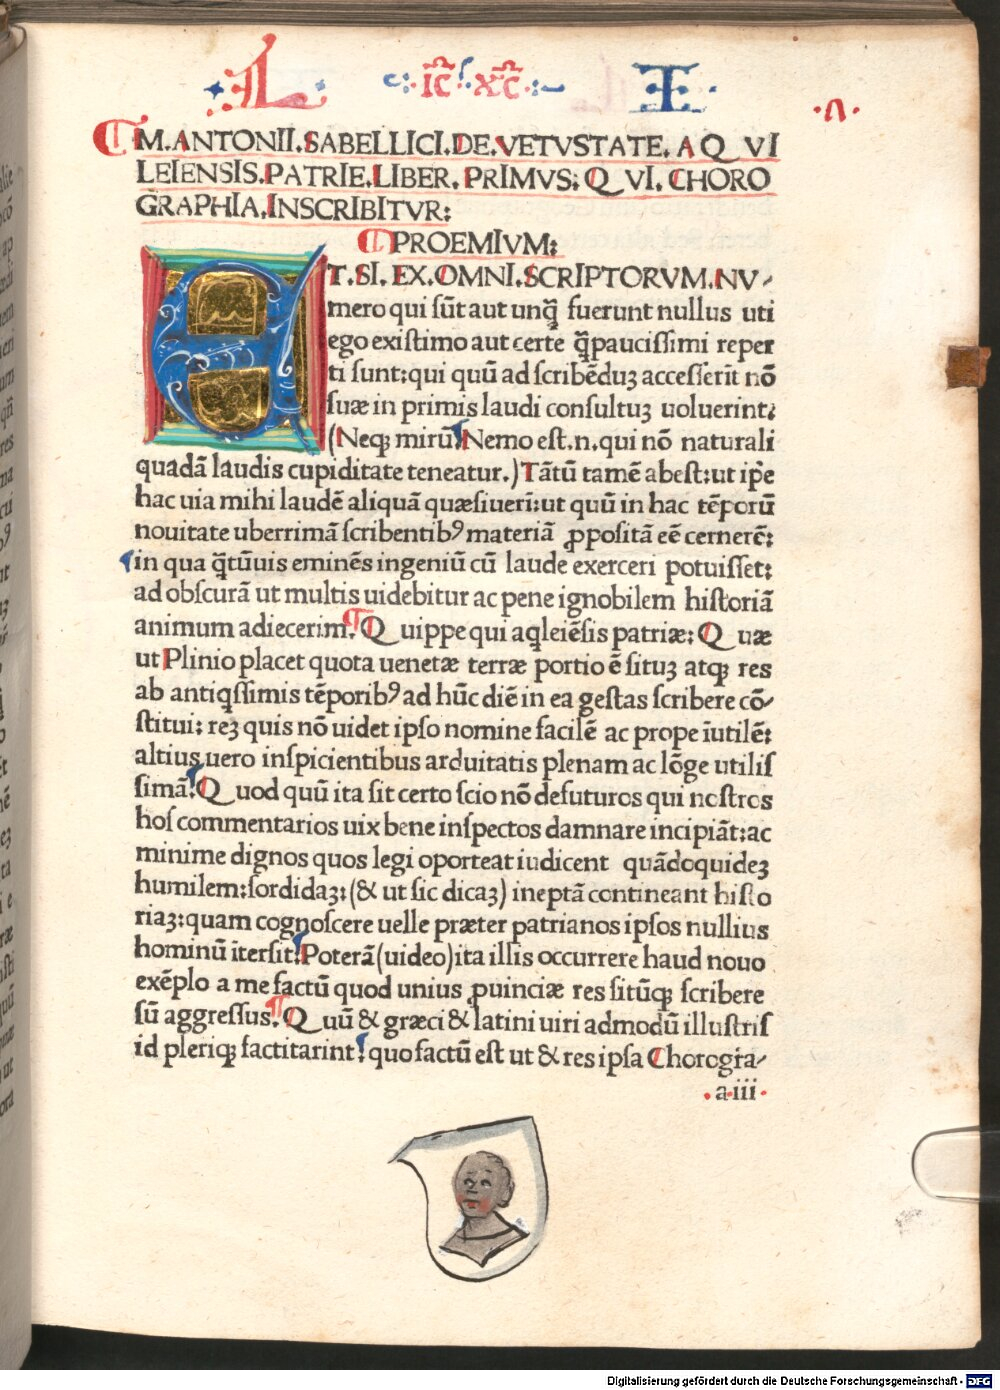 ·L· c:·ic̄·xc̄·:~ ·I·
·n·
M.ANTONII.SABELLICI.DE.VETVSTATE.AQVI
LEIENSIS.PATRIE.LIBER.PRIMVS: QVI.CHORO
GRAPHIA.INSCRIBITVR:
PROEMIVM:
ET.SI.EX.OMNI.SCRIPTORVM.NV-
mero qui sūt aut unq̄ fuerunt nullus uti
ego existimo aut certe q̄paucissimi reper
ti sunt:qui quū ad scribēduꝫ accesserīt nō
suæ in primis laudi consultuꝫ uoluerint:
(Neqꝫ mirū:Nemo est.n.qui nō naturali
quadā laudis cupiditate teneatur.)Tātū tamē abest:ut ip̄e
hac uia mihi laudē aliquā quæsiueri:ut quū in hac tēporū
nouitate uberrimā scribentibꝰ materiā ꝓpositā eē cernerē:
in qua q̄tūuis eminēs ingeniū cū laude exerceri potuisset:
ad obscurā ut multis uidebitur ac pene ignobilem historiā
animum adiecerim. Quippe qui aq̄leiēsis patriæ: Quæ
ut Plinio placet quota uenetæ terræ portio ē situꝫ atqꝫ res
ab antiq̄ssimis tēporibꝰ ad hūc diē in ea gestas scribere cō-
stitui: reꝫ quis nō uidet ipso nomine facilē ac prope īutilē:
altius uero inspicientibus arduitatis plenam ac lōge utilis
simā:Quod quū ita sit certo scio nō defuturos qui nostros
hos commentarios uix bene inspectos damnare incipiāt:ac
minime dignos quos legi oporteat iudicent quādoquideꝫ
humilem:sordidaꝫ:(& ut sic dicaꝫ) ineptā contineant histo
riaꝫ:quam cognoscere uelle præter patrianos ipsos nullius
hominū ītersit:Poterā(uideo)ita illis occurrere haud nouo
exēplo a me factū quod unius ꝓuinciæ res sitūqꝫ scribere
sū aggressus. Quū & græci & latini uiri admodū illustris
id pleriqꝫ factitarint:quo factū est ut & res ipsa Chorogra-
a iii
Digitalisierung gefördert durch die Deutsche Forschungsgemeinschaft - DFG